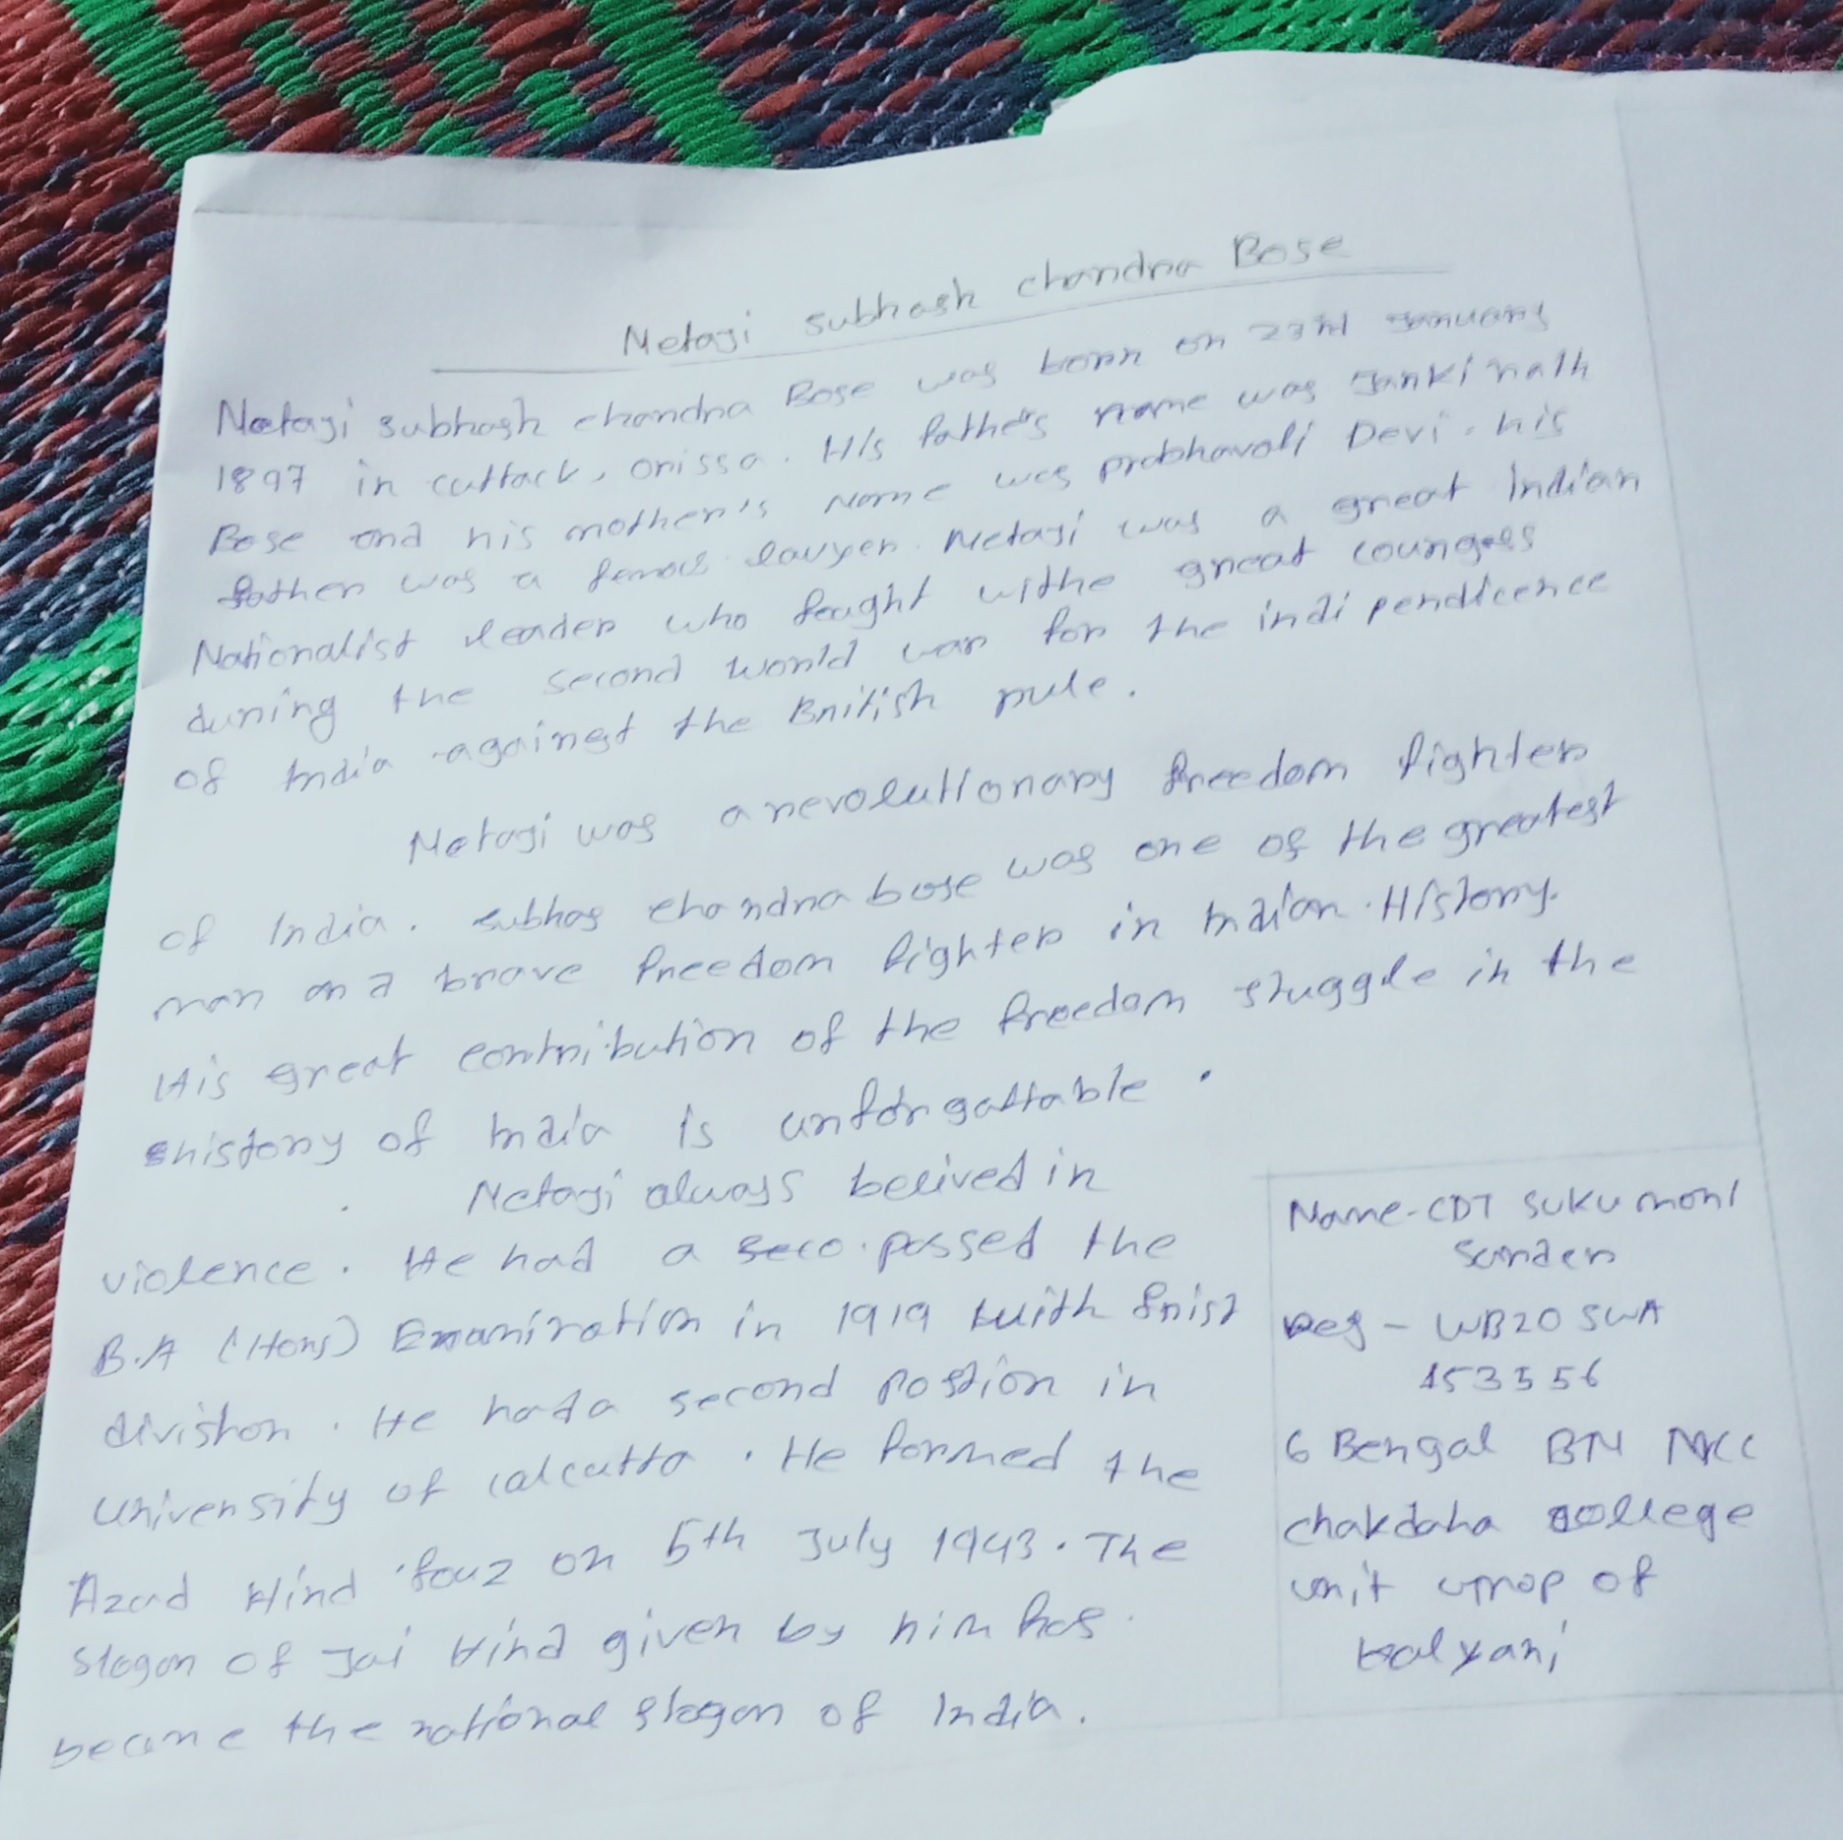 Netaji subhash chandra Bose
Netaji subhash chandra Bose was born on 23rd January
1897 in cuttack, orissa. His father's name was Janki nath
Bose and his mother's Name was prabhavati Devi. his
father was a famous lawyer. Netaji was a great Indian
Nationalist leader who fought withe great
during the second world war for the indi pendicence
of India against the British rule.
Netaji was a revolutionary freedom fighter
of India. subhas chandra bose was one of the greatest
man and brave freedom fighter in Indian. History.
His great contribution of the freedom stuggle in the
history of India is unforgattable.
Netaji always belived in
violence. He had a seco. passed the
B.A (Hons) in 1919 with
division. He had a second postion in
University of calcutta. He formed the
Azad Hind fouz on 5th July 1943. The
slogan of Jai Hind given by him has
became the national slogan of India.
Name-CDT sukumoni
sarder
Reg - WB20 SWA
153556
6 Bengal BN NCC
chakdaha college
unit group of
kalyani